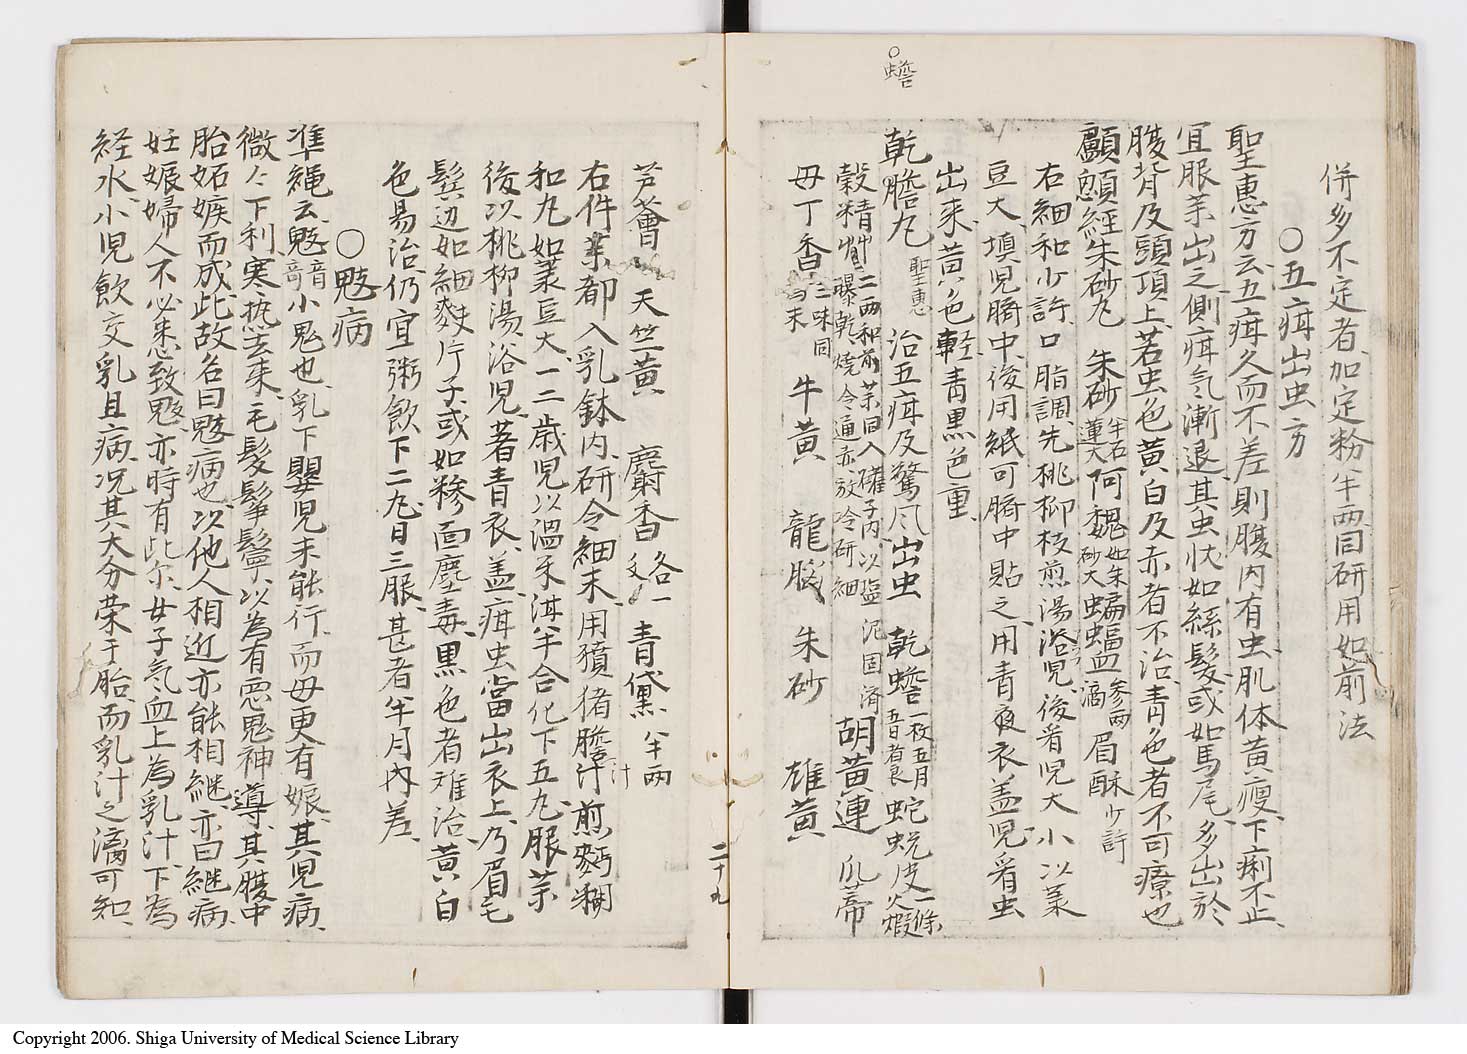 併多不定者加定粉半兩同研用如前法
○五疳出虫方
聖惠方云五疳久而不差則腹內有虫肌体黃瘦下痢不止
宜服茱出之側疳氣漸退其虫状如絲髮或如馬尾多出於
腹背及頭項上若虫色黃白及赤者不治青色者不可療也
顱顖經朱砂丸 朱砂半石蓮大 阿魏如朱砂大 蝙蝠血参兩滴 眉酥少許
右細和少許口脂調先桃柳枝煎湯浴児後看児大小以菉
豆大填児臍中後用紙可臍中貼之用青衣盖児看虫
出来黃色軽青黒色重
○蟾
乾膽丸聖惠 治五疳及驚风出虫 乾蟾一枚五月五日者良 蛇蛻皮一條火煆
穀精艸二兩和前茱同入罐子内以盐泥固済曝乾燒令通赤放冷研細 胡黃連 瓜蒂
母丁香三味同為末 牛黃 龍腦 朱砂 雄黃
二十九
芦薈 天竺黃 麝香各一文 青黛半兩
右件茱都入乳鉢内研令細末用獖猪膽汁煎麪糊
汁
和丸如菉豆大一二歲児以溫米泔半合化下五丸服茱
後以桃柳湯浴児著青衣盖疳虫當出衣上乃眉毛
鬂边如細麩片子或如糝面塵毒黒色者难治黃白
色易治仍宜粥飲下二丸日三服甚者半月内差
○鬾病
準繩云鬾音奇小鬼也乳下嬰児未能行而母更有娠其児病
微々下利寒热去来毛髮鬇鬡以為有悪鬼神導其腹中
胎妬嫉而成此故名曰鬾病也以他人相近亦能相継亦曰継病
妊娠婦人不必悉致鬾亦時有此尔女子气血上為乳汁下為
経水小児飲交乳且病况其大分荣于胎而乳汁之漓可知